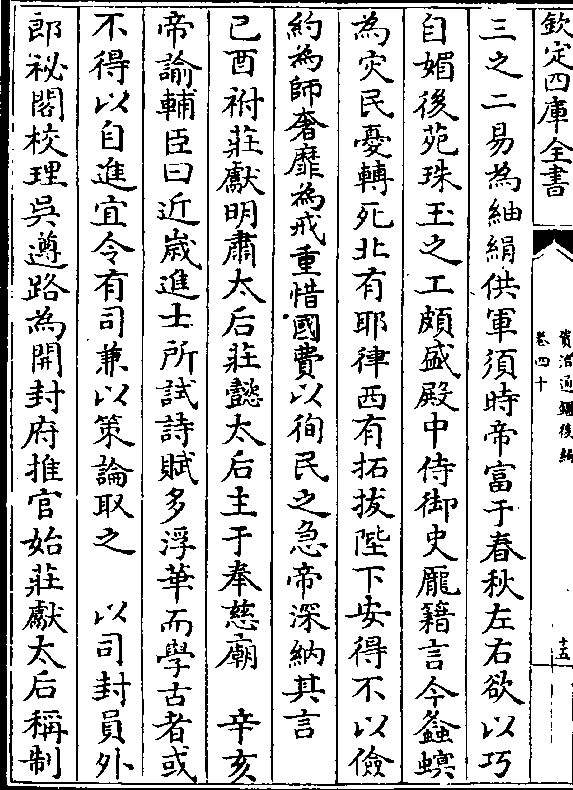 欽定四庫全書
資治通鑑後編
卷四十
十五
三之二易為紬絹供軍須時帝富于春秋左右欲以巧
自媚後苑珠玉之工頗盛殿中侍御史龎籍言今螽螟
為灾民憂轉死北有耶律西有拓拔陛下安得不以儉
約為師奢靡為戒重惜國費以徇民之急帝深納其言
己酉祔莊獻明肅太后莊懿太后主于奉慈廟　辛亥
帝諭輔臣曰近嵗進士所試詩賦多浮華而學古者或
不得以自進宜令有司兼以策論取之　以司封員外
郎祕閣校理吳遵路為開封府推官始莊獻太后稱制